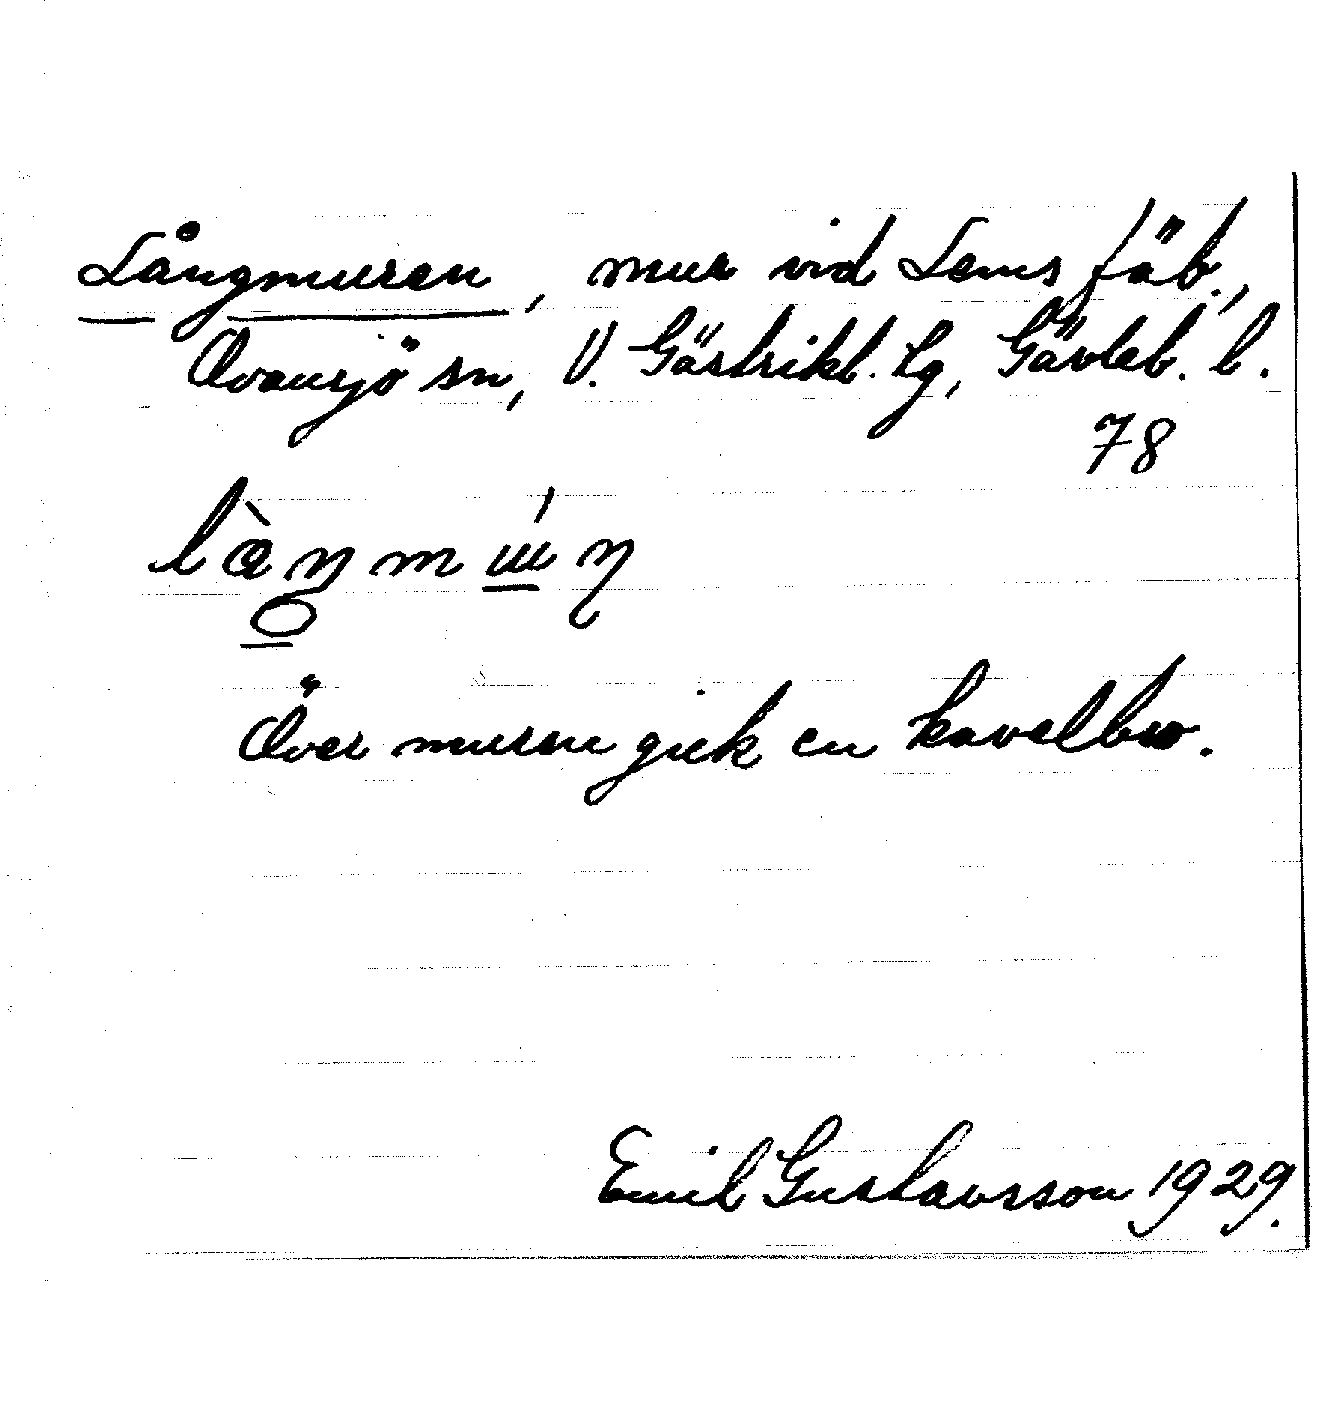 Långmuren, mur vid Lems fäb.,
Ovansjö sn, V. Gästrikl. tg, Gävleb. l.
78
Över muren gick en kavelbro.
Emil Gustavsson 1929.